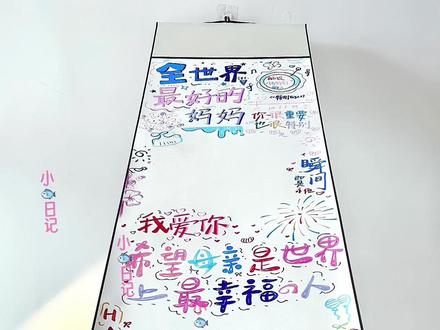 全世界
最好的
妈妈
你很重要
也很特别
瞬间
我爱你
希望母亲是世界
上最幸福の人
小🐟日记
小🐟日记